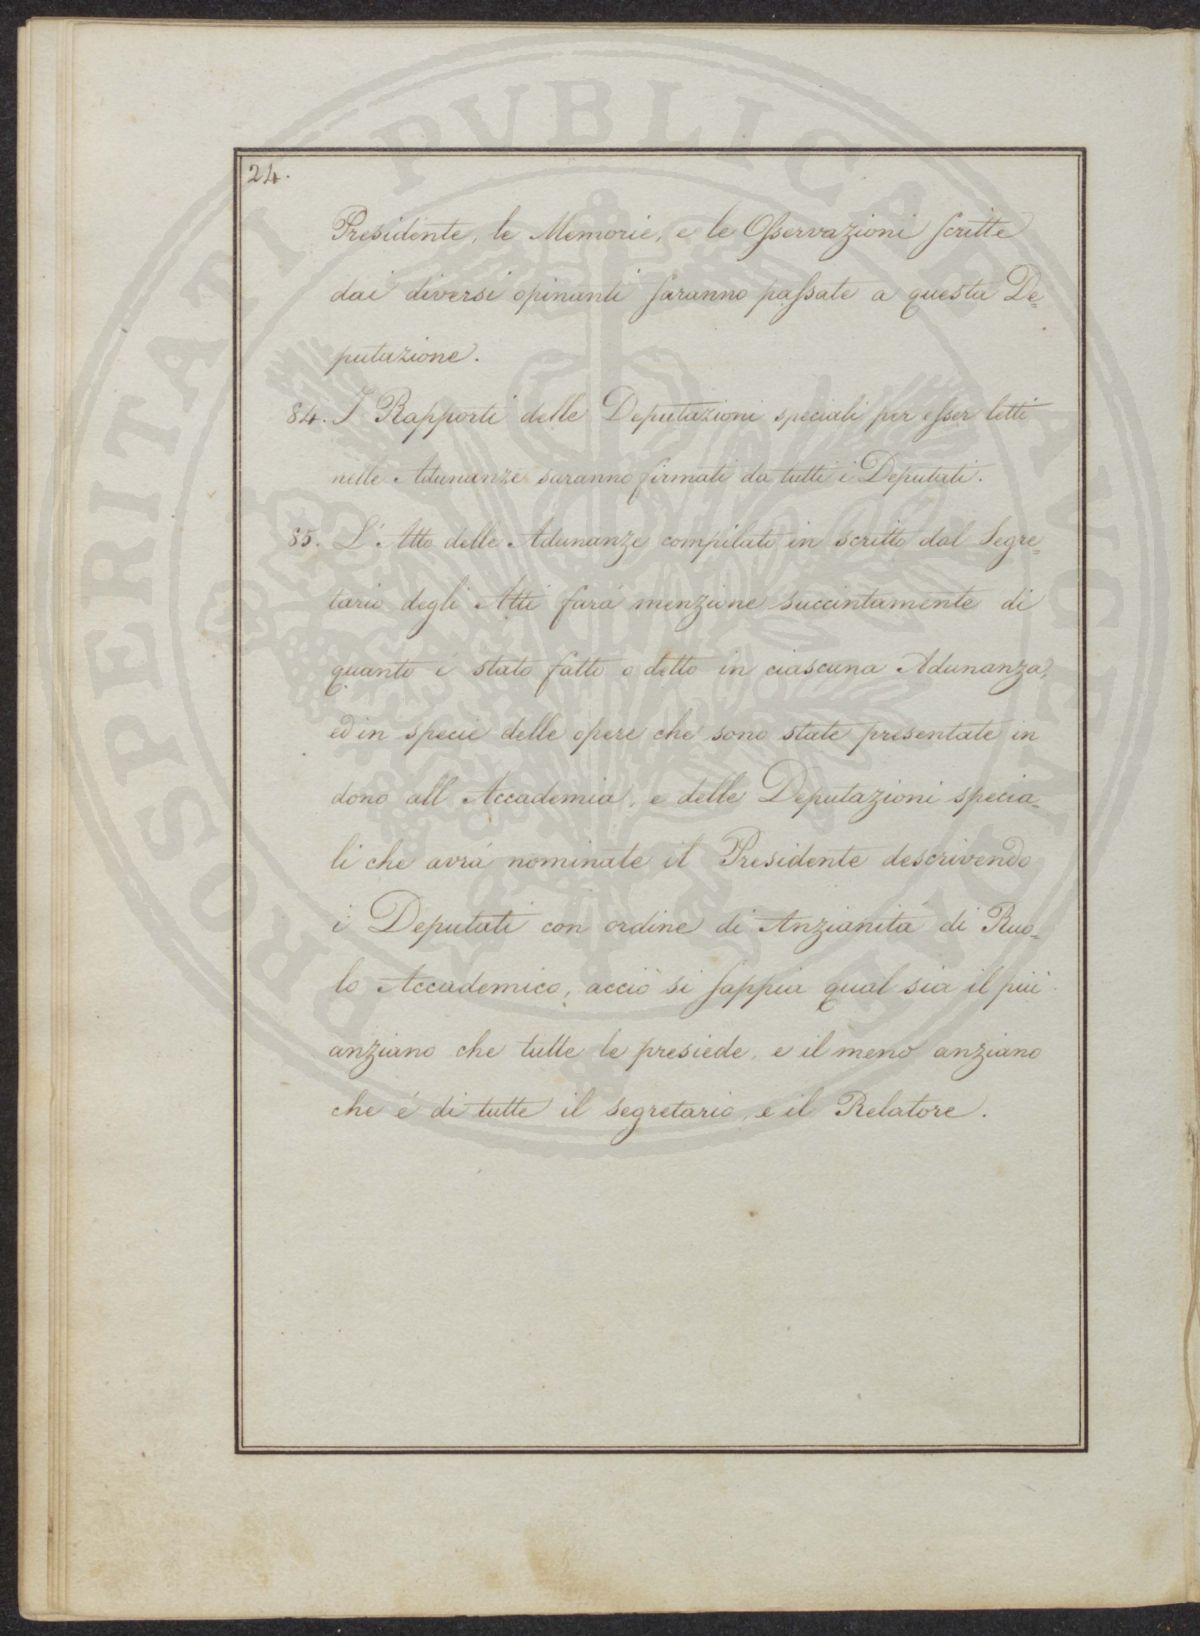 PROSPERITATI PVBLICAE AVGENDAE
24.
Presidente, le Memorie, e le Oſservazioni ſcritte
dai diversi opinanti ſaranno paſsate a questa De=
putazione.
84. I Rapporti delle Deputazioni speciali per eſser letti
nelle Adunanze saranno firmati da tutti i Deputati.
85. L'Atto delle Adunanze compilato in scritto dal Segre=
tario degli Atti farà menzione succintamente di
quanto è stato fatto o detto in ciascuna Adunanza,
ed in specie delle opere che sono state presentate in
dono all Accademia, e delle Deputazioni specia=
li che avrà nominate il Presidente descrivendo
i Deputati con ordine di Anzianità di Ruo=
lo Accademico, acciò si ſappia qual sia il più
anziano che tutte le presiede, e il meno anziano
che è di tutte il segretario, e il Relatore.